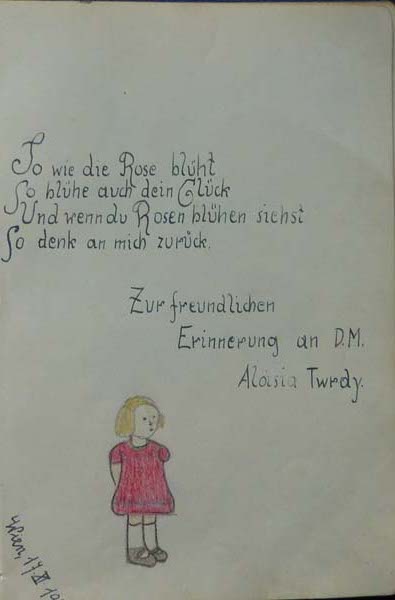 So wie die Rose blüht
So blühe auch dein Glück
Und wenn du Rosen blühen siehst
So denk an mich zurück.
Zur freundlichen
Erinnerung an D.M.
Aloisia Twrdy.
Wien, 17. XI. 19